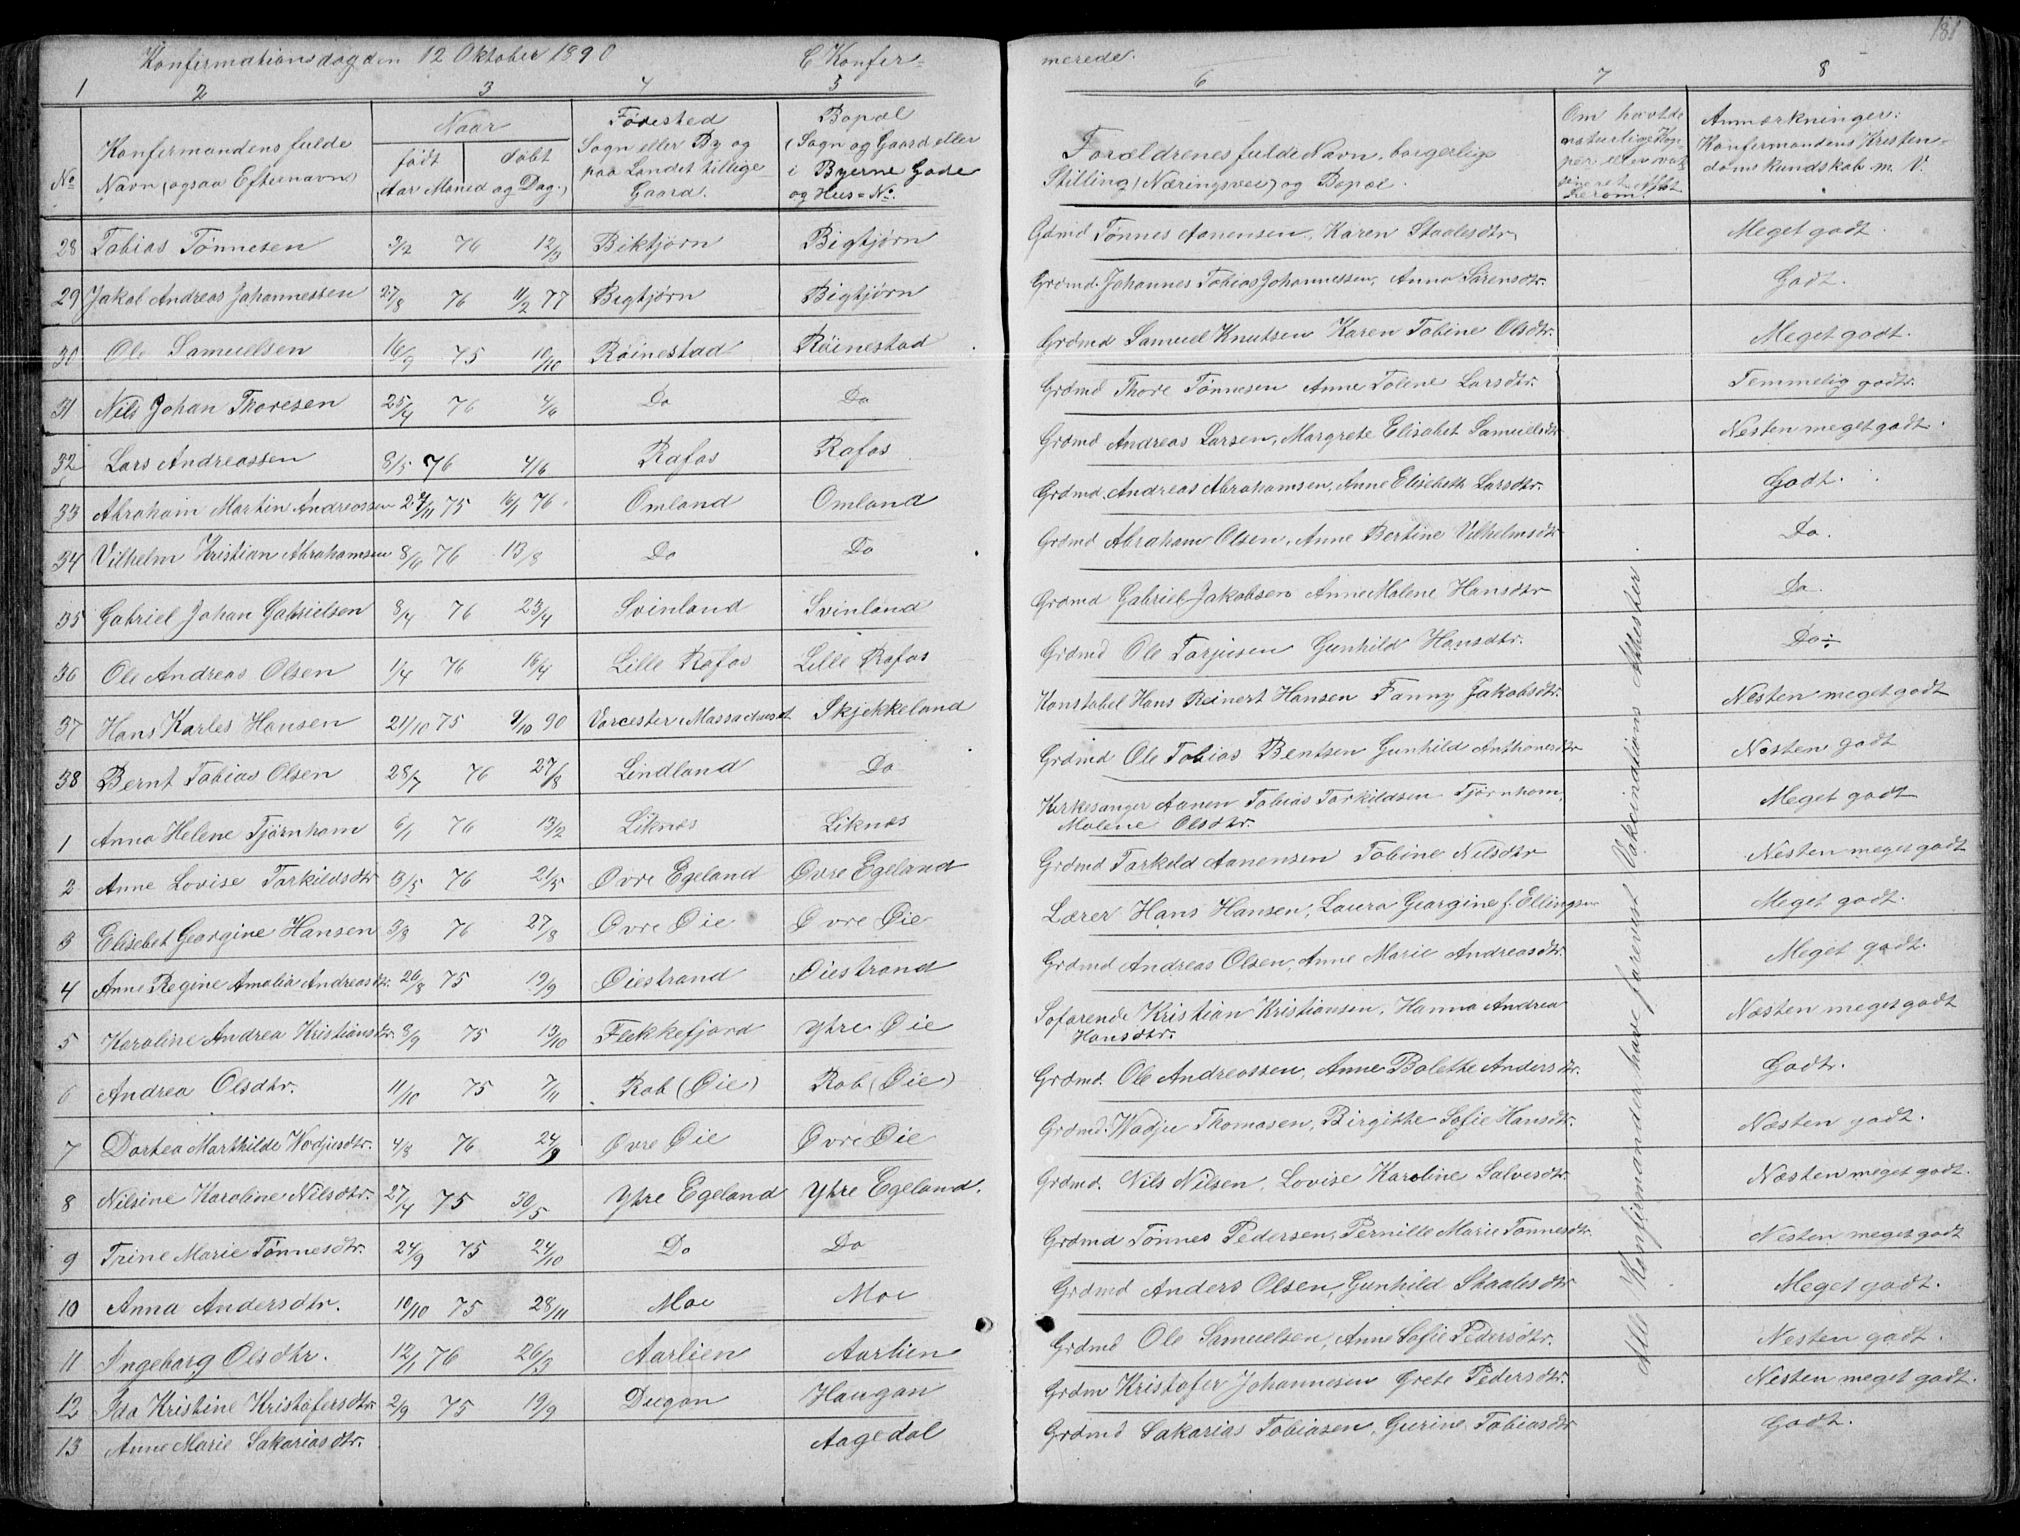 181
Konfirmationsdag den 12 Oktober 1890 C Konfer-
merede.
1 2 3 4 5 6 7 8
No
Konfirmandens fulde
Navn (ogsaa Efternavn)
Naar
født døbt
(Aar Maned og Dag.)
Fødested
Sogn eller By og
paa Landet tillige
Gaard.
Bopæl
(Sogn og Gaard eller
i Byerne Gade
og Hus-No.
Forældrenes fulde Navn, borgerlige
Stilling (Næringsvei) og Bopæl.
Om havt de
naturlige Kop-
per
Anmærkninger:
Konfirmandens Kristen-
domskundskab m. V.
28 Tobias Tønnesen 3/2 76 12/3 Biktjørn Bigtjørn Gdmd Tønnes Aanensen, Karen Staalesdtr Meget godt.
29 Jakob Andreas Johannessen 27/8 76 11/2 77 Bigtjørn Bigtjørn Grdmd. Johannes Tobias Johannessen, Anna Sørensdtr. Godt.
30 Ole Samuelsen 16/9 75 10/10 Røinestad Røinestad Grdmd Samuel Knutsen Karen Tobine Olsdtr. Meget godt.
31 Nils Johan Thoresen 25/4 76 4/6 Do Do Grdmd Thore Tønnesen Anne Tolene Larsdtr. Temmelig godt.
32 Lars Andreassen 8/5 76 4/6 Rafos Rafos Grdmd Andreas Larsen, Margrete Elisabet Samuelsdtr Nesten meget godt.
33 Abraham Martin Andreassen 27/11 75 16/1 76 Omland Omland Grdmd. Andreas Abrahamsen, Anne Elisabeth Larsdtr. Godt.
34 Vilhelm Kristian Abrahamsen 8/6 76 13/8 Do Do Grdmd Abraham Olsen, Anne Bertine Vilhelmsdtr Do.
35 Gabriel Johan Gabrielsen 8/4 76 23/4 Svinland Svinland Grdmd Gabriel Jakobsen Anne Malene Hansdtr Do.
36 Ole Andreas Olsen 1/4 76 16/4 Lille Rafos Lille Rafos Grdmd Ole Torjusen Gunhild Hansdtr. Do
37 Hans Karles Hansen 21/10 75 9/10 90 Vorcester, Massachuset Skjekkeland Konstabel Hans Reinert Hansen Fanny Jakobsdtr. Nesten meget godt
38 Bernt Tobias Olsen 28/7 76 27/8 Lindland Do Grdmd Ole Tobias Bentsen Gunhild Anthonesdtr Nesten godt
1 Anna Helene Tjørnhom 6/1 76 13/2 Liknes Liknes Kirkesanger Aanen Tobias Torkildsen Tjørnhom,
Malene Olsdtr. Meget godt
2 Anne Lovise Torkildsdtr 3/5 76 21/5 Øvre Egeland Øvre Egeland Grdmd Torkild Aanensen Tobine Nilsdtr Nesten meget godt
3 Elisebet Georgine Hansen 3/8 76 27/8 Øvre Øie Øvre Øie Lærer Hans Hansen, Laura Georgine f. Ellingsen Meget godt.
4 Anne Regine Amalia Andreasdtr. 26/8 75 19/9 Øiestrand Øiestrand Grdmd Andreas Olsen, Anne Marie Andreasdtr. Meget godt.
5 Karoline Andrea Kristiansdtr. 8/9 75 13/10 Flekkefjord Ytre Øie Sofarende Kristian Kristiansen, Hanna Andrea
Hansdtr. Næsten meget godt
6 Andrea Olsdtr. 11/10 75 7/11 Rob (Øie) Rob (Øie) Grdmd. Ole Andreassen, Anne Bolette Andersdtr. Godt.
7 Dortea Marthilde Wodjusdtr. 4/8 76 24/9 Øvre Øie Øvre Øie Grdmd. Wodju Thomasen, Birgithe Sofie Hansdtr. Næsten godt.
8 Nilsine Karoline Nilsdtr. 27/4 75 30/5 Ytre Egeland Ytre Egeland. Grdmd. Nils Nilsen, Lovise Karoline Salvesdtr. Næsten meget godt.
9 Trine Marie Tønnesdtr. 24/9 75 24/10 Do Do Grdmd Tønnes Pedersen, Pernille Marie Tønnesdtr. Nesten meget godt
10 Anna Andersdtr. 10/10 75 28/11 Moe Moe Grdmd Anders Olsen, Gunhild Staalesdtr Meget godt.
11 Ingeborg Olsdtr. 12/1 76 26/3 Aarlien Aarlien Grdmd Ole Samuelsen, Anne Sofie Pedersdtr. Nesten godt.
12 Ida Kristine Kristofersdtr. 2/9 75 19/9 Dugan Haugan Grdm Kristofer Johannesen Grete Pedersdtr. Nesten meget godt.
13 Anne Marie Sakariasdtr. Aagedal Grdmd Sakarias Tobiasen, Gurine Tobiasdtr Godt.
Alle Konfirmander have forevist Vakcinations Attester.